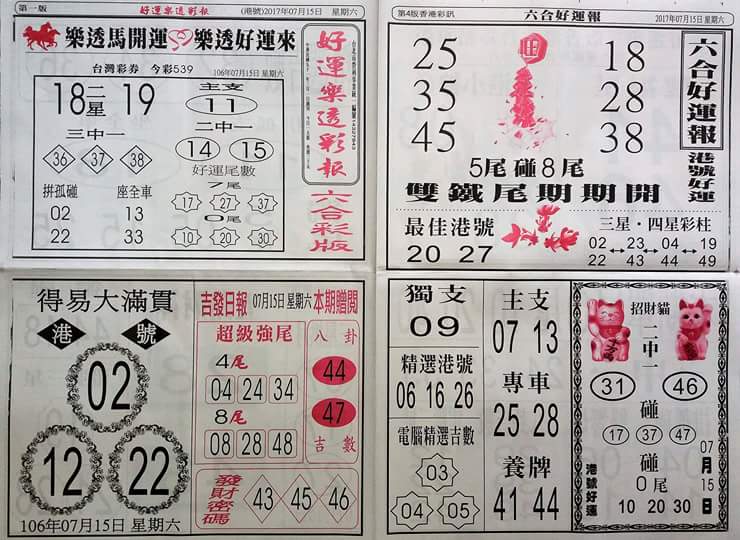 第一版
好運樂透彩報
(港號)2017年07月15日 星期六
樂透馬開運 樂透好運來
台灣彩券 今彩539
106年07月15日 星期六
18 二星 19
主支
11
三中一
36 37 38
二中一
14 15
好運尾數
7尾
17 27 37
0尾
10 20 30
拼孤碰
02
22
座全車
13
33
好運樂透彩報
六合彩版
第4版香港彩訊
六合好運報
2017年07月15日 星期六
25 18
35 28
45 38
5尾碰8尾
雙鐵尾期期開
最佳港號
20 27
三星·四星彩柱
02 23 04 19
22 43 44 49
六合好運報
港號好運
得易大滿貫
港 號
02
12 22
106年07月15日 星期六
吉發日報
07月15日 星期六
本期贈閱
超級強尾
4尾
04 24 34
8尾
08 28 48
八卦
44
47
吉數
發財密碼
43 45 46
獨支
09
精選港號
06 16 26
電腦精選吉數
03
04 05
主支
07 13
專車
25 28
養牌
41 44
招財貓
二中一
31 46
碰
17 37 47
碰
0尾
10 20 30
港號好運
07月15日